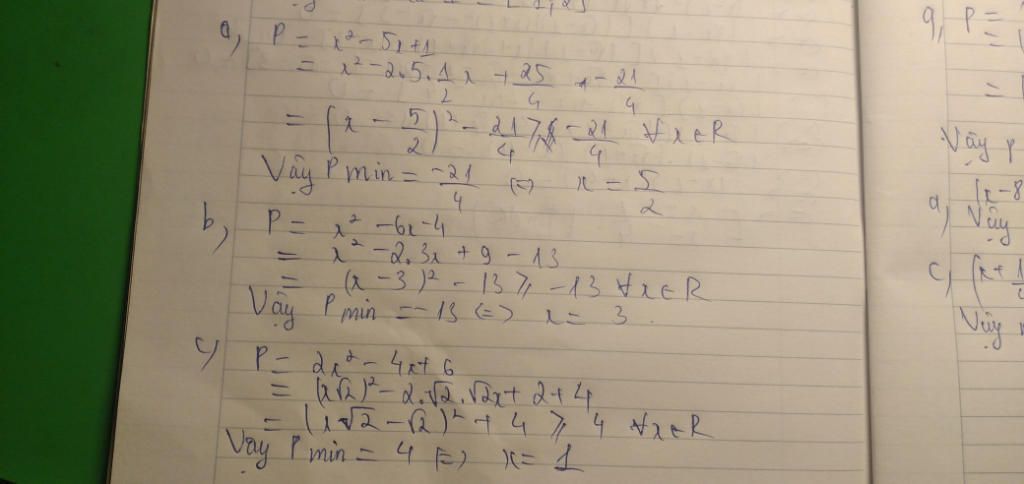 a, P = x² - 5x + 1
= x² - 2.5.1/2 x + 25/4 + -21/4
= (x - 5/2)² - 21/4 ⩾ -21/4 ∀x∈R
Vậy P min = -21/4 (=) x = 5/2
b, P = x² - 6x - 4
= x² - 2.3x + 9 - 13
= (x - 3)² - 13 ⩾ -13 ∀x∈R
Vậy P min = -13 (=) x = 3.
c, P = 2x² - 4x + 6
= (x√2)² - 2.√2.√2x + 2 + 4
= (x√2 - √2)² + 4 ⩾ 4 ∀x∈R
Vậy P min = 4 (=) x = 1
g, P =
=
=
Vậy P
(x-8
a, Vậy
c, (x + 1
Vậy